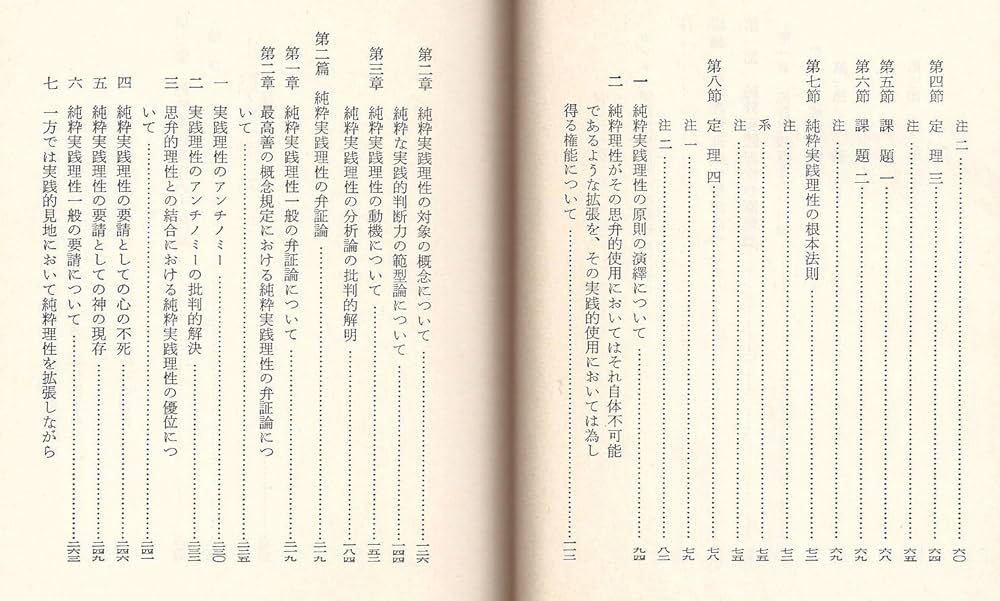 注 二……六〇
第四節 定 理 三……六四
注……六五
第五節 課 題 一……六八
第六節 課 題 二……六九
注……六九
第七節 純粋実践理性の根本法則……七二
注……七二
系……七五
注……七五
第八節 定 理 四……七八
注 一……七九
注 二……八二
一 純粋実践理性の原則の演繹について……九四
二 純粋理性がその思弁的使用においてはそれ自体不可能
であるような拡張を、その実践的使用においては為し
得る権能について……一一二
第二章 純粋実践理性の対象の概念について……一二六
純粋な実践的判断力の範型論について……一四四
第三章 純粋実践理性の動機について……一五二
純粋実践理性の分析論の批判的解明……一八四
第二篇 純粋実践理性の弁証論……二一九
第一章 純粋実践理性一般の弁証論について……二一九
第二章 最高善の概念規定における純粋実践理性の弁証論につ
いて……二二五
一 実践理性のアンチノミー……二三〇
二 実践理性のアンチノミーの批判的解決……二三二
三 思弁的理性との結合における純粋実践理性の優位につ
いて……二四一
四 純粋実践理性の要請としての心の不死……二四六
五 純粋実践理性の要請としての神の現存……二四九
六 純粋実践理性一般の要請について……二六三
七 一方では実践的見地において純粋理性を拡張しながら